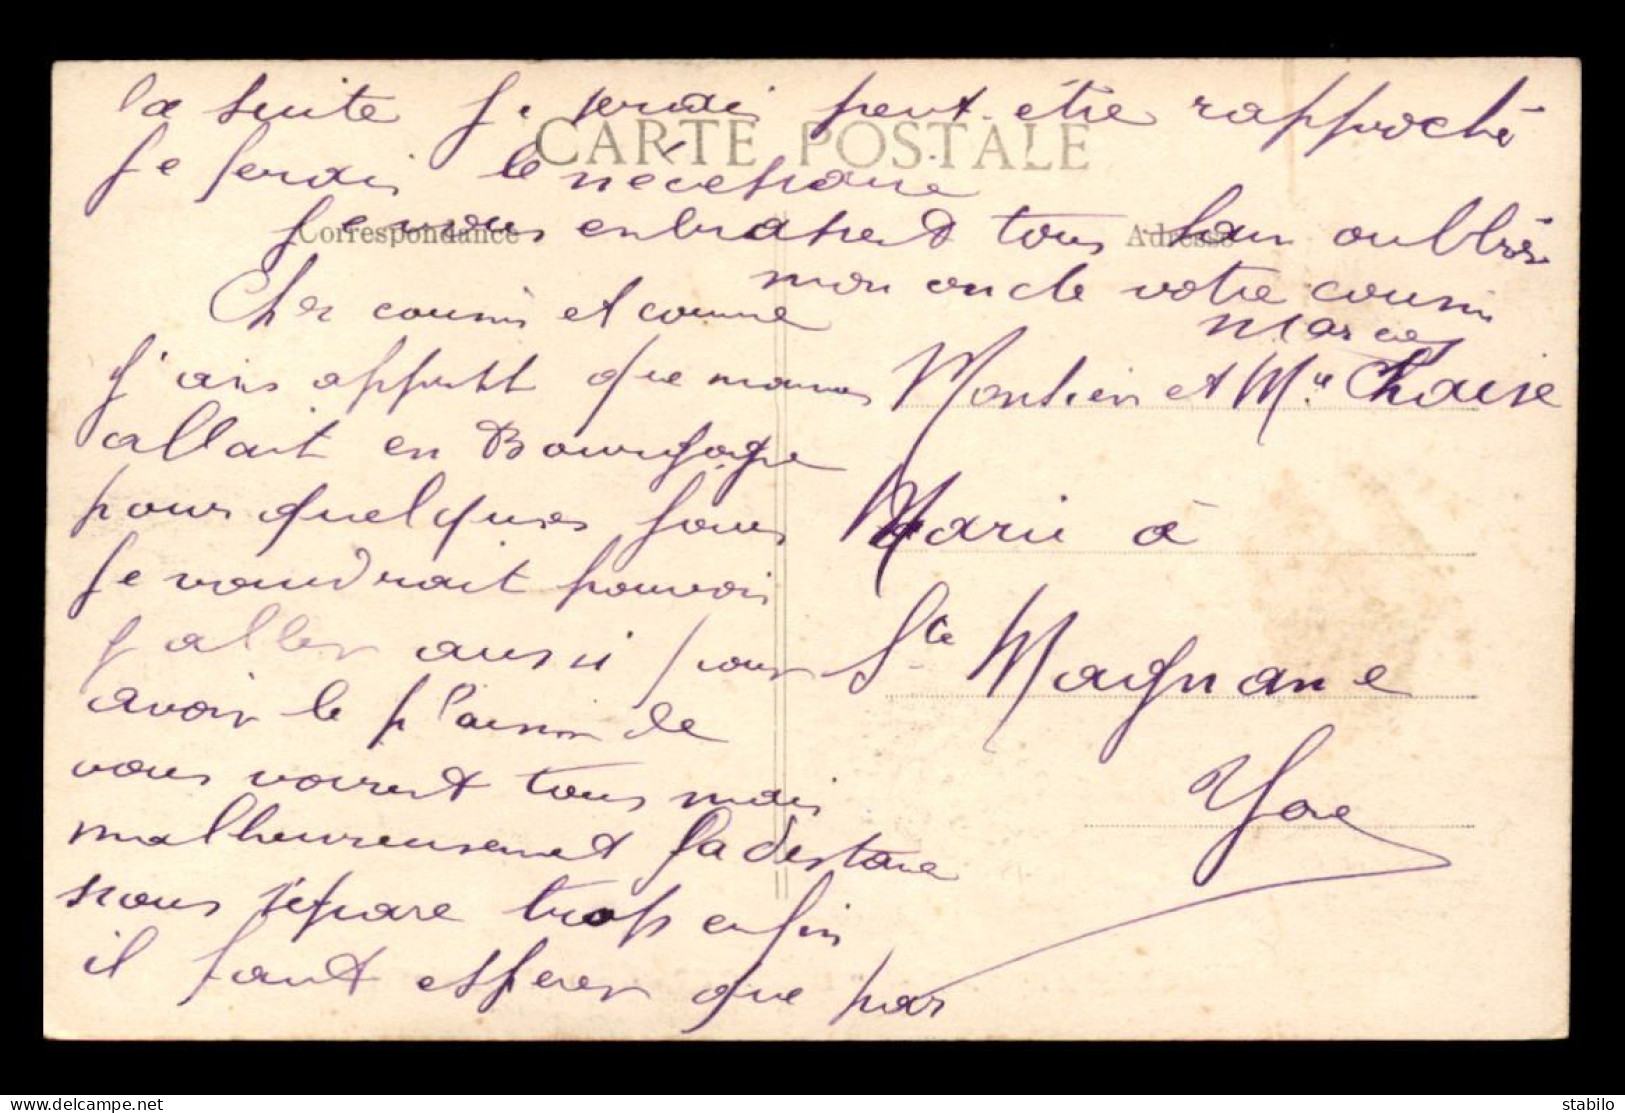 Cher cousins et cousine
j'ais appris que maman
allait en Bourgogne
pour quelques jours
Je voudrait pouvoir
y aller aussi pour
avoir le plaisir de
vous voir tous mais
malheureusement la distance
nous sépare trop enfin
il faut espérer que par
la suite je serai peut-être rapproché
Je ferais le nécessaire
Je vous embrassent tous sans oublier
mon oncle votre cousin
CARTE POSTALE
Correspondance
Adresse
Monsieur et Mme Chaise
Marie à
Ste Magnance
Yonne
stabilo